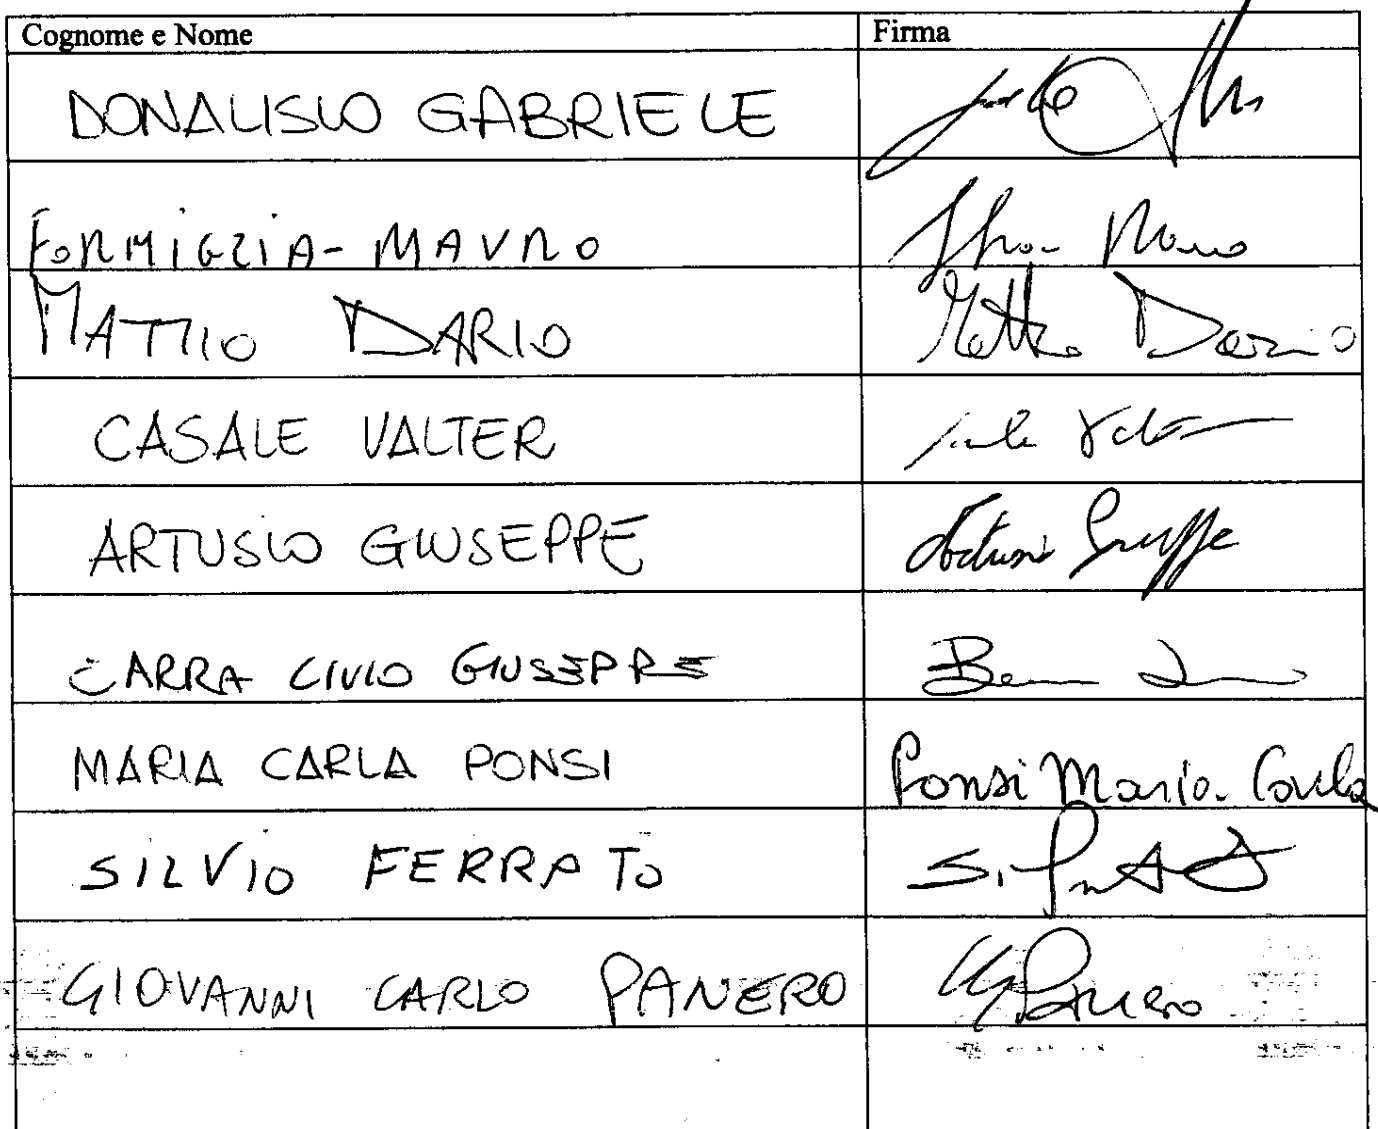 Cognome e Nome Firma
DONALISIO GABRIELE
FORMIGLIA - MAURO
MATTIO DARIO Mattio Dario
CASALE VALTER
ARTUSIO GIUSEPPE Artusio Giuseppe
CARRA CIVIO GIUSEPPE
MARIA CARLA PONSI Ponsi Maria Carla
SILVIO FERRATO
GIOVANNI CARLO PANERO Panero